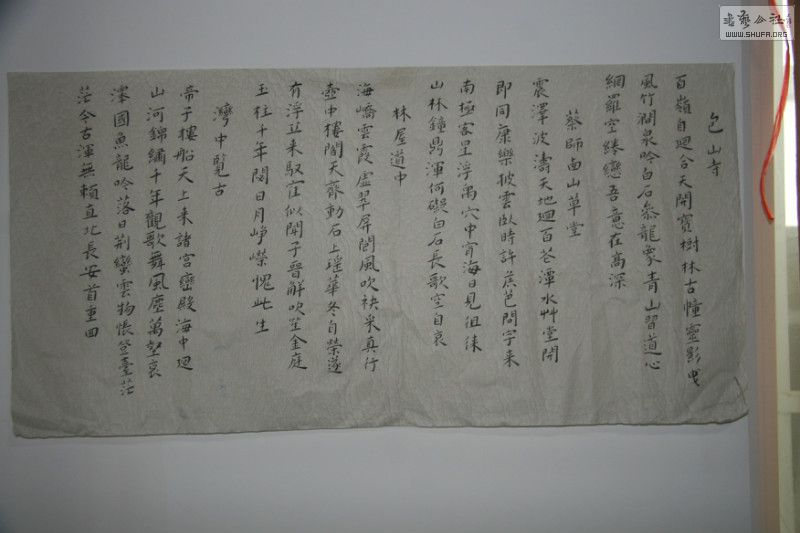 包山寺
百嶺自迴合天開寶樹林古幢靈影曳
風竹澗泉吟白石參龍象青山習道心
網羅空綣戀吾意在高深
蔡師南山草堂
震澤波濤天地迴百花潭水艸堂開
即同康樂披雲臥時許侯芭問字來
南極客星浮禹穴中宵海日見徂徠
山林鐘鼎渾何礙白石長歌空自哀
林屋道中
海嶠雲霞虛翠屏閬風吹袂采真行
壺中樓閣天齊動石上瑤華冬自榮遂
有浮丘來馭崔似聞子晉解吹笙金庭
玉柱千年閟日月崢嶸愧此生
灣中覽古
帝子樓船天上來諸宮巒殿海中迴
山河錦繡千年觀歌舞風塵萬壑哀
澤國魚龍吟落日荊蠻雲物悵登臺茫
茫今古渾無賴直北長安首重回
書藝公社
WWW.SHUFA.ORG